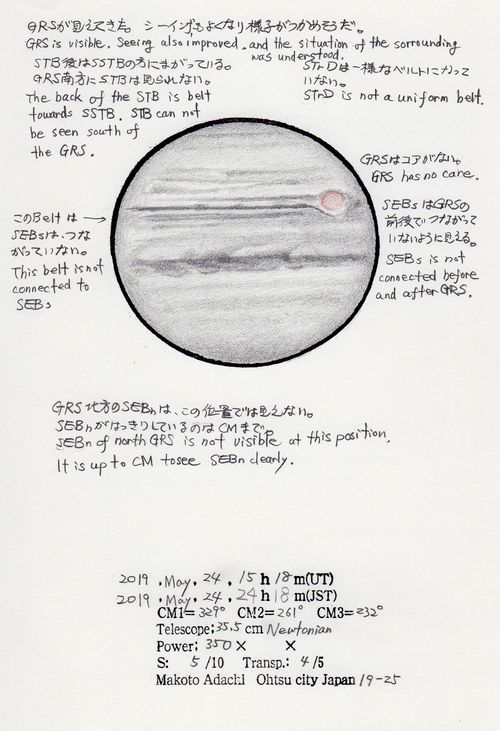 GRSが見えてきた。シーイングもよくなり様子がつかめそうだ。
GRS is visible. Seeing also improved. and the situation of the sorrounding
was understood.
STB後はSSTBの方にまがっている。
GRS南方にSTBは見られない。
The back of the STB is belt
towards SSTB. STB can not
be seen south of
the GRS.
STrDは一様なベルトになって
いない。
STrD is not a uniform belt.
GRSはコアがない。
GRS has no core.
SEBsはGRSの
前後でつながって
いないように見える。
SEBs is not
connected before
and after GRS.
このBeltは →
SEBsは、つな
がっていない。
This belt is not
connected to
SEBs
GRS地方のSEBnは、この位置では見えない。
SEBnがはっきりしているのはCMまで。
SEBn of north GRS is not visible at this position.
It is up to CM to see SEBn clearly.
2019 .May. 24 . 15 h 18 m(UT)
2019 .May. 24 . 24 h 18 m(JST)
CM1=329° CM2=261° CM3=232°
Telescope; 35.5 cm Newtonian
Power; 350 × ×
S: 5 /10 Transp.: 4 /5
Makoto Adachi Ohtsu city Japan 19-25